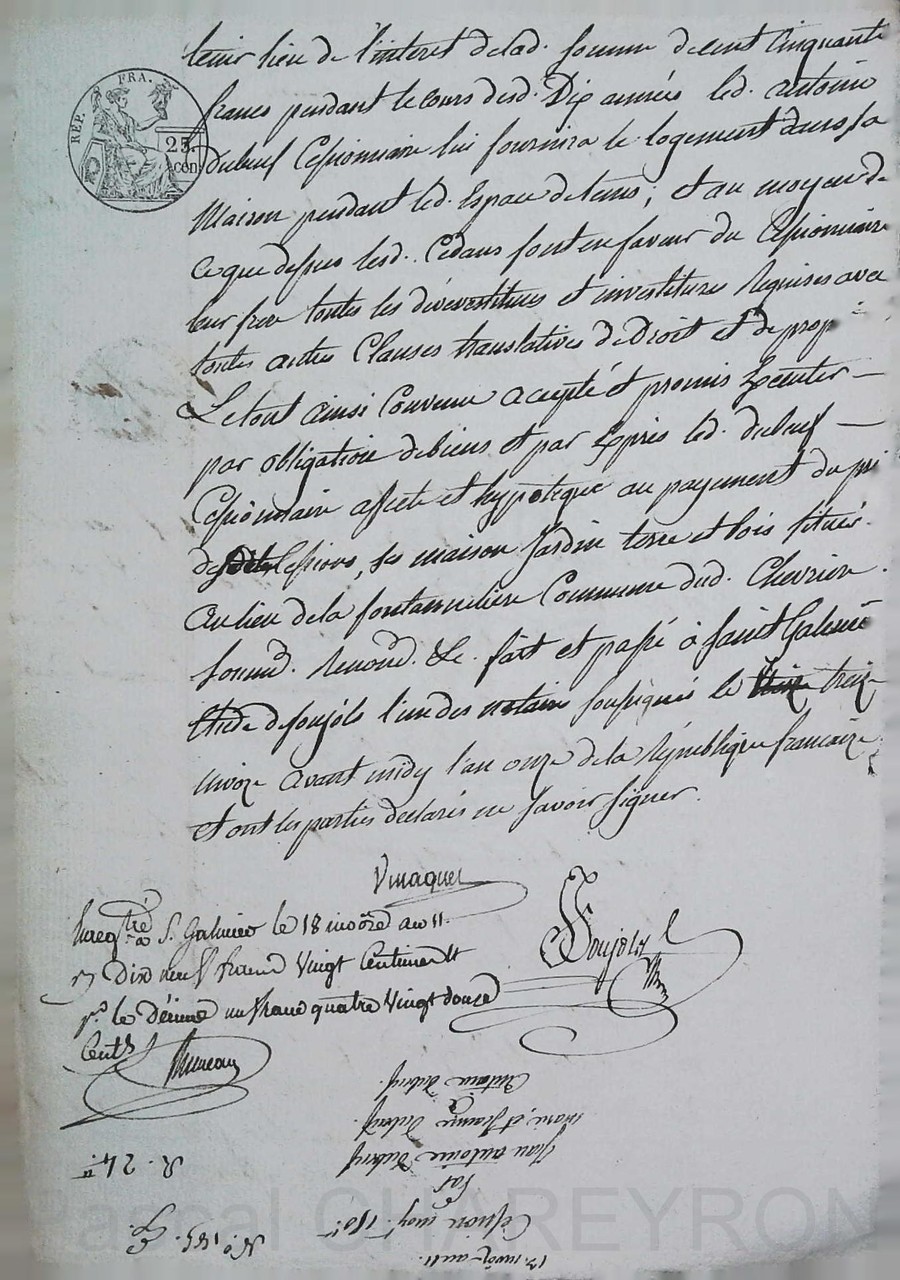 REP. FRA.
25 cen
tenir lieu de l'interet delad. somme decent cinquante
francs pendant le cours desd. Dix années led. antoine
dubeuf Cessionnaire lui fournira le logement dans sa
Maison pendant led. Espace de tems; et au moyen de
ce que dessus lesd. Cedans font en faveur du Cessionnaire
leur frere toutes les devestitures et investitures Requises avec
toutes autres Clauses translatives de Droit et de prop.té
Le tout ainsi Convenu accepté et promis Executer —
par obligation de biens et par Exprès led. dubeuf —
Cessionnaire affecte et hypoteque au payement du prix
des Cessions, ses maison Jardin terre et bois situés
au lieu de la fontanneliere Commune dud. Chevrier
soumd. Renond. &c. fait et passé à Saint Galmier
Etude de soujols l'un des notaires soussignés le treize
nivoze avant midy l'an onze de la république francaize
et ont les parties declarés ne savoir signer.
Vinaquet
Soujols
Enregtré à S. Galmier le 18 nivôse an 11.
Dix neuf francs Vingt Centimes et
pr. le Décime un franc quatre Vingt douze
Cents
Antoine dubeuf.
marie et françoise dubeuf
Jean antoine dubeuf
Par
Cession moy.t 150 tt
13 nivôse an 11.
R. 24
No. 185.
Pascal CHAREYRON